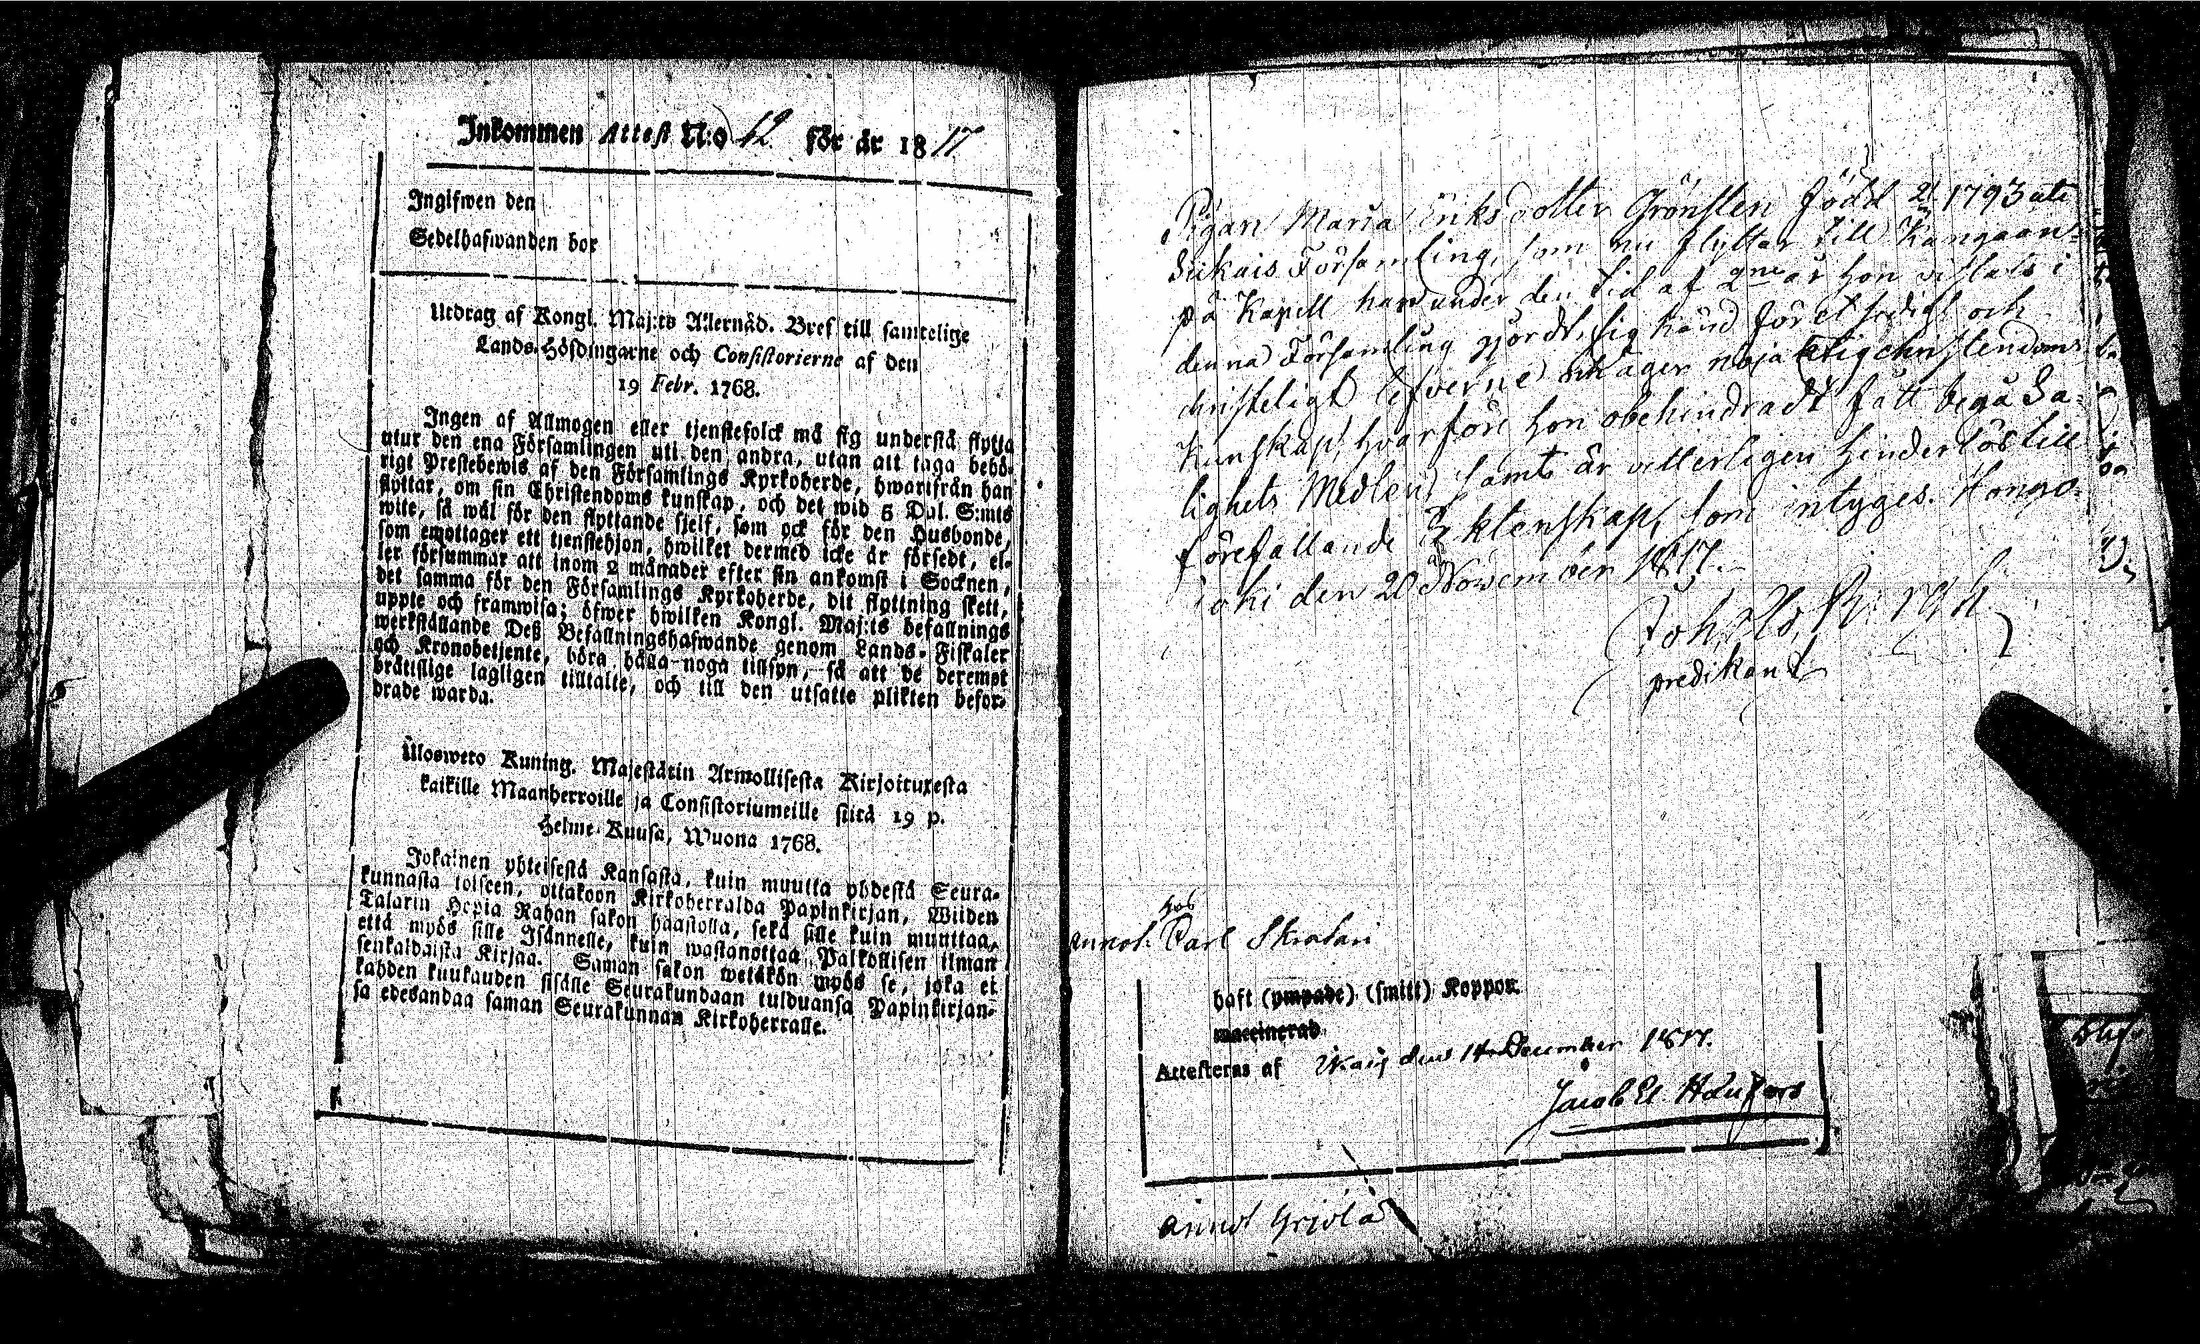 Inkommen Attest N:o 12 för år 1817
Ingifwen den
Sedelhafwanden bor
Utdrag af Kongl. Maj:ts Allernåd. Bref till samtelige
Lands-Höfdingarne och Consistorierne af den
19 Febr. 1768.
Ingen af Allmogen eller tjenstefolck må sig understå flytta
utur den ena Församlingen uti den andra, utan att taga behö-
rigt Prestebewis af den Församlings Kyrkoherde, hwarifrån han
flyttar, om sin Christendoms kunskap, och det wid 5 Dal. S:mts
wite, så wäl för den flyttande sjelf, som ock för den Husbonde,
som emottager ett tjenstehjon, hwilket dermed icke är försedt, el-
ler försummar att inom 2 månader efter sin ankomst i Socknen,
det samma för den Församlings Kyrkoherde, dit flyttning skett,
uppte och framwisa; öfwer hwilken Kongl. Maj:ts befallnings
werkställande Deß Befallningshafwande genom Lands-Fiskaler
och Kronobetjente, böra hålla noga tillsyn, så att de deremot
brätislige lagligen tilltalte, och till den utsatte plikten befor-
drade warda.
Ulosweto Kuning. Majestätin Armollisesta Kirjoituxesta
kaikille Maanherroille ja Consistoriumeille siitä 19 p.
Helme-Kuusa, Wuona 1768.
Jokainen yhteisestä Kansasta, kuin muutta yhdestä Seura-
kunnasta toiseen, ottakoon Kirkoherralda Papinkirjan, Wiiden
Talarin Hopia Rahan sakon haastolla, sekä sille kuin muuttaa,
että myös sille Isännelle, kuin wastanottaa Palkollisen ilman
senkaldaista Kirjaa. Saman sakon wetäkön myös se, joka ei
kahden kuukauden sisälle Seurakundaan tulduansa Papinkirjan-
sa edesandaa saman Seurakunnan Kirkoherralle.
Pigan Maria Eriksdotter Grönsten född 1793 uti
Församling, som nu flyttar till Kangaan-
på Kapell har under den tid af 2ne år hon vistats i
denna Församling gjordt sig känd för et sedigt och
christeligt lefverne och äger nöjaktig christendoms
kunskap, hvarföre hon obehindradt fått begå Sa-
lighets Medlen samt är vitterligen hinderlös till
förefallande Ektenskap, som intyges. Hongo-
joki den 20 November 1817.
Joh. Bergh
predikant
hos
annot. Carl Skratari
haft (ympade) (smitt) Koppor.
waccinerad
Attesteras af den 14 December 1817.
Jacob
annot